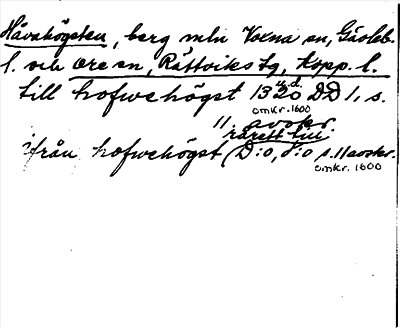 Håvahögsten, berg mln Voxna sn, Gävleb.
l. och Ore sn, Rättviks tg, Kopp. l.
till hofwehögst 13 20 DD 1, s.
omkr. 1600
11. avskr.
från hofwehögst (D:o, d:o s. 11 avskr.
omkr. 1600